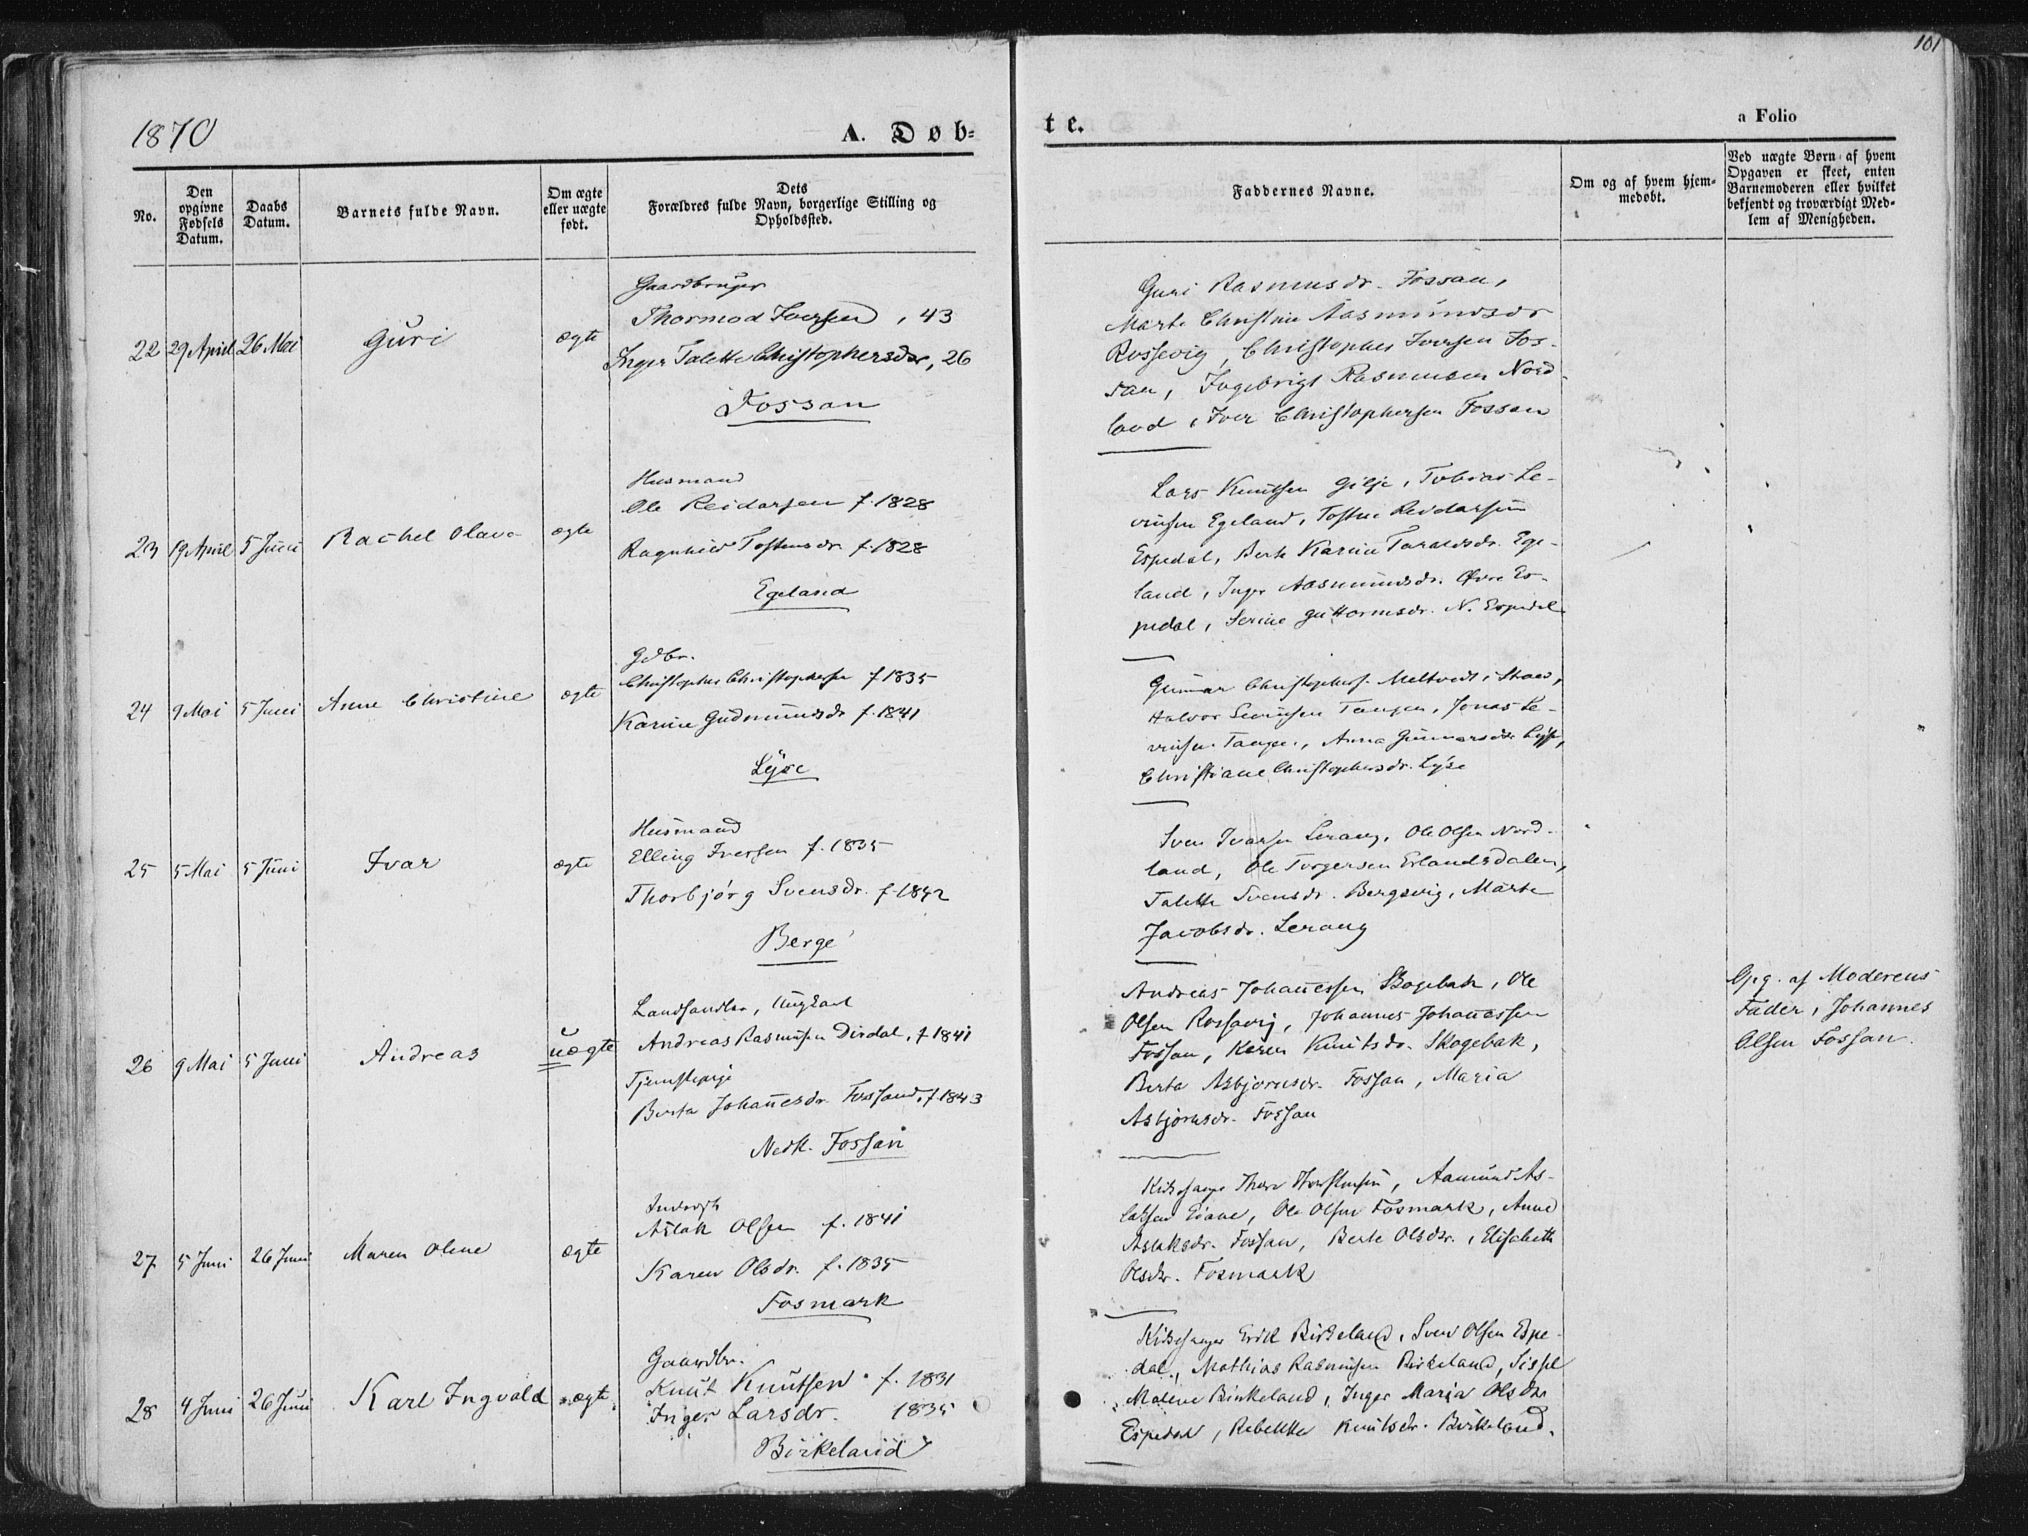 101
1870
A. Døb-
te.
a Folio
No.
Den opgivne Fødsels Datum.
Daabs Datum.
Barnets fulde Navn.
Om ægte eller uægte født.
Dets
Forældres fulde Navn, borgerlige Stilling og Opholdssted.
Faddernes Navne.
Om og af hvem hjem-
medøbt.
Ved uægte Børn af hvem
Opgaven er skeet, enten
Barnemoderen eller hvilket
bekjendt og troværdigt Med-
lem af Menigheden.
22 29 April 26 Mai Guri ægte
Gaardbruger
Thormod Iversen, 43
Inger Talette Christophersdr, 26
Fossan
Guri Rasmusdr. Fossan,
Marte Christine Aasmundsdr
Rossevig, Christopher Iversen Fos-
san, Ingebrigt Rasmussen Nord-
land, Iver Christophersen Fossan
23 19 April 5 Juni Rachel Olava ægte
Husmand
Ole Reidarsen f. 1828
Ragnhild Tostensdr. f. 1828
Egeland
Lars Knutsen Gilje, Tobias Le-
vinsen Egeland, Tosten Reidarsen
Espedal, Berte Karine Taraldsdr. Ege-
land, Inger Aasmundsdr. Øvre Es-
pedal, Serine Guttormsdr. N. Espedal
24 9 Mai 5 Juni Anne Christine ægte
Gdbr.
Christopher Christophersen f 1835
Karine Gudmundsdr f. 1841
Lyse
Gunnar Christophers. Meltvedt,
Halvor Levinsen Tangen, Jonas Le-
vinsen Tangen, Anna Gunnarsdr Lyse,
Christiane Christophersdr. Lyse
25 5 Mai 5 Juni Ivar ægte
Husmand
Elling Iversen f. 1835
Thorbjörg Svensdr. f. 1842
Berge
Sven Ivarsen Lerang, Ole Olsen Nord-
land, Ole Torgersen Erlandsdalen,
Talette Svensdr. Bergevig, Marte
Jacobsdr. Lerang
26 9 Mai 5 Juni Andreas uægte
Landhandler, Ungkarl
Andreas Rasmusen Dirdal, f 1841
Tjenestepige
Berta Johannesdr Fossand, f 1843
Nedk. Fossan
Andreas Johannessen Skogebak, Ole
Olsen Rossavig, Johannes Johannessen
Fossan, Karen Knutsdr. Skogebak,
Berta Asbjornsdr. Fossan, Maria
Asbjørnsdr. Fossan
Opg. af Moderens
Fader, Johannes
Olsen Fossan.
27 5 Juni 26 Juni Maren Oline ægte
Aslak Olsen f. 1841
Karen Olsdr. f. 1835
Fosmark
Kirkesanger Thore Aamund As-
laksen Eiane, Ole Olsen Fosmark, Anne
Aslaksdr. Fossan, Berte Olsdr., Elisabeth
Olsdr. Fosmark
28 4 Juni 26 Juni Karl Ingvald ægte
Gaardbr.
Knut Knutsen f. 1831
Inger Larsdr. 1835
Birkeland
Kirkesanger Erik Birkeland, Svend Olsen Espe-
dal, Mathias Rasmusen Birkeland, Sissel
Malene Birkeland, Inger Maria Olsdr
Espedal, Rebekka Knutsdr. Birkeland.